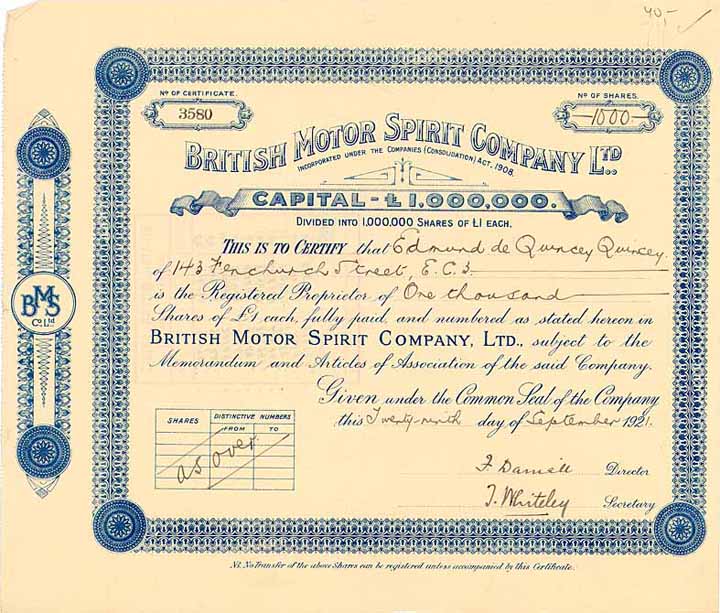 40,-
Nº OF CERTIFICATE.
3580
Nº OF SHARES.
1000
BRITISH MOTOR SPIRIT COMPANY LTD
INCORPORATED UNDER THE COMPANIES (CONSOLIDATION) ACT, 1908.
CAPITAL - £1,000,000.
DIVIDED INTO 1,000,000 SHARES OF £1 EACH.
THIS IS TO CERTIFY that Edmund de Quincey Quincey
of 143 Fenchurch Street, E.C.3.
is the Registered Proprietor of One thousand
Shares of £1 each, fully paid, and numbered as stated hereon in
BRITISH MOTOR SPIRIT COMPANY, LTD., subject to the
Memorandum and Articles of Association of the said Company.
Given under the Common Seal of the Company
this Twenty-ninth day of September 1921.
BMS
Co. Ltd
SHARES DISTINCTIVE NUMBERS
FROM TO
as over
F. Daniell Director
J. Whiteley Secretary
NB. No Transfer of the above Shares can be registered unless accompanied by this Certificate.